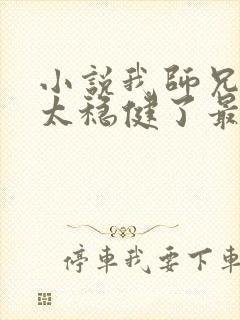 小説我師兄
太穩健了最
停車我要下車